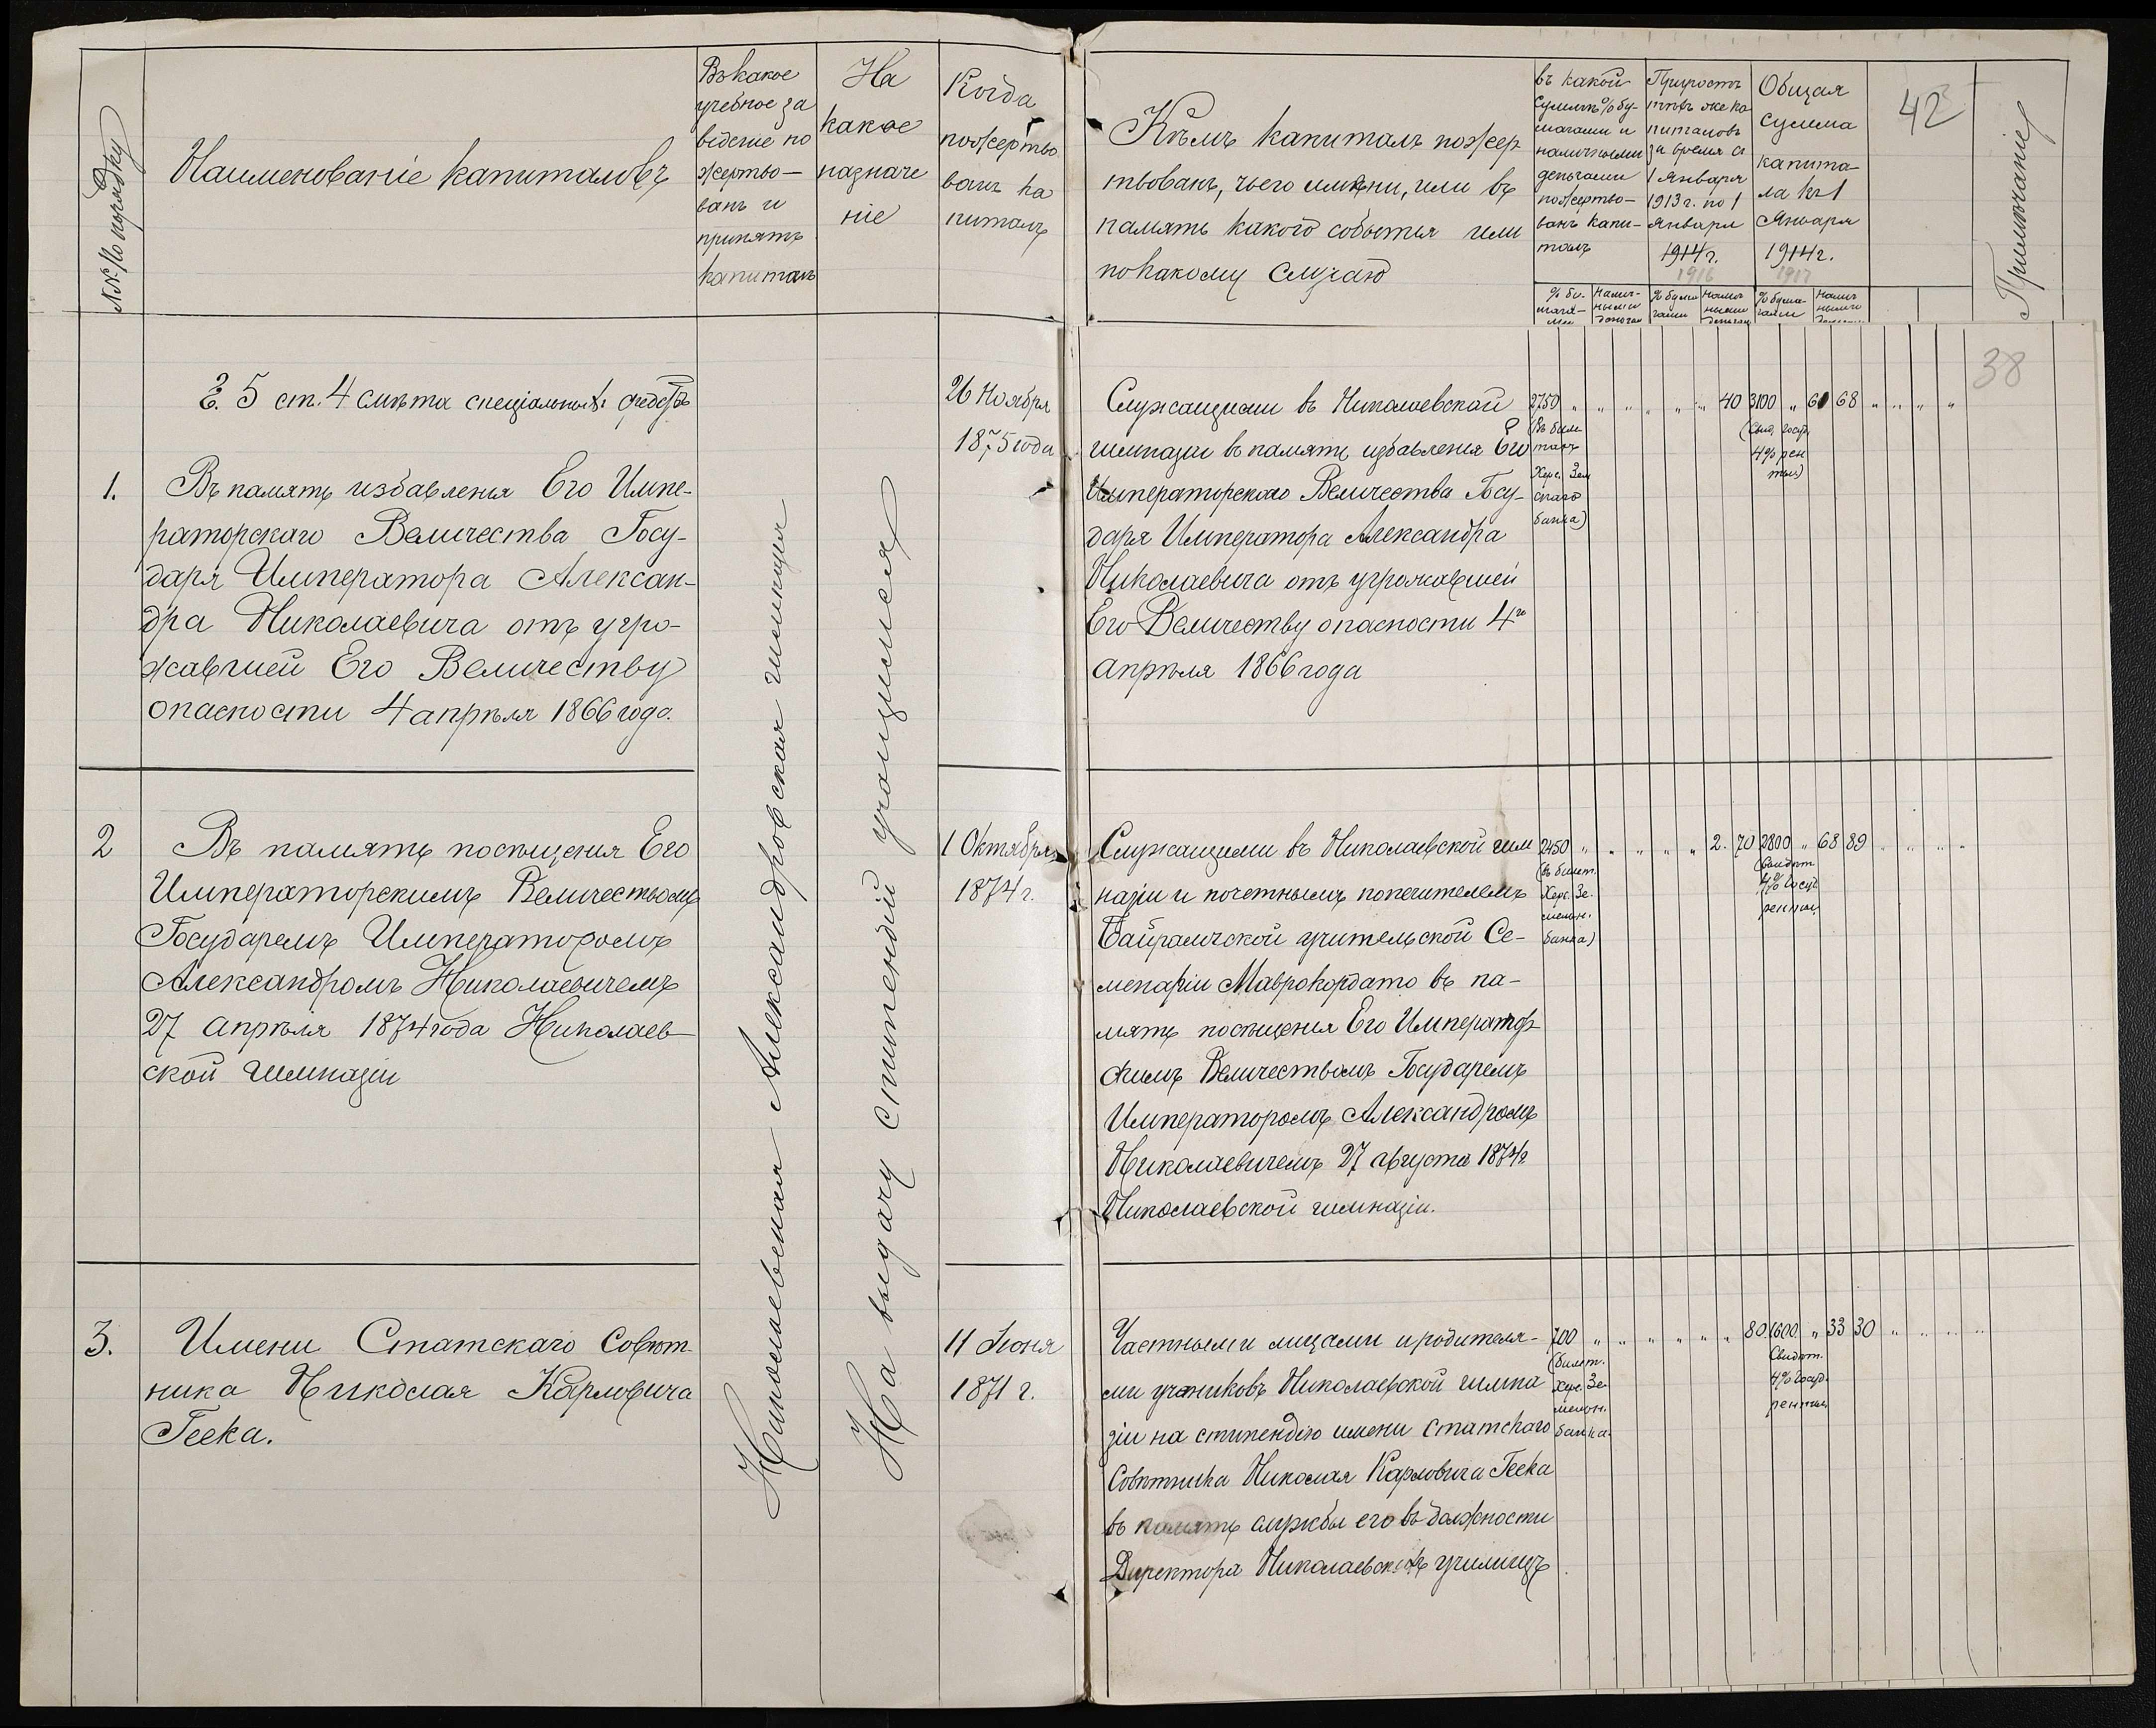 №№ по порядку
Наименованіе капиталовъ
Въ какое
учебное за
веденіе по
жертво-
ванъ и
принятъ
капиталъ
На
какое
назначе
ніе
Когда
пожертво
ванъ ка
питалъ
Къмъ капиталъ пожер
твованъ, чьего имени, или въ
память какого событья или
по какому случаю
въ какой
суммѣ % бу-
магами и
наличными
деньгами
пожертво-
ванъ капи-
талъ
Приростъ
тѣхъ же ка
питаловъ
за время съ
1 января
1913 г. по 1
января
1914 г.
1916
Общая
сумма
капита-
ла къ 1
Января
1914 г.
1917
42
Примѣчаніе
% бу-
мага-
ми
Налич-
ными
деньгам
% бума
гами
Налич
ными
деньгам
% бума-
гами
Налич
ными
38
§. 5 ст. 4 смѣта спеціальныхъ средствъ
1.
Въ память избавленія Его Импе-
раторскаго Величества Госу-
даря Императора Алексан-
дра Николаевича отъ угро-
жавшей Его Величеству
опасности 4 апрѣля 1866 года.
26 Ноября
1875 года
Служащими въ Николаевской
гимназіи въ память избавленія Его
Императорскаго Величества Госу-
даря Императора Александра
Николаевича отъ угрожавшей
Его Величеству опасности 4го
апрѣля 1866 года
2750 " " " " " " 40 3100 " 60 68 " " " "
(въ биле-
тахъ
Херс. Зем
скаго
банка)
(Свид. Госуд.
4% рен
ты)
2
Въ память посѣщенія Его
Императорскимъ Величествомъ
Государемъ Императоромъ
Александромъ Николаевичемъ
27 апрѣля 1874 года Николаев-
ской гимназіи
1 Октября
1874 г.
Служащими въ Николаевской гим
назіи и почетнымъ попечителемъ
Байрамчской учительской Се-
менаріи Маврокордато въ па-
мять посѣщенія Его Император
скимъ Величествомъ Государемъ
Императоромъ Александромъ
Николаевичемъ 27 августа 1874 г.
Николаевской гимназіи.
2450 " " " " " 2. 70 2800 " 68 89 " " " "
(въ билет.
Херс. Зе-
мельн.
банка)
(Свидѣт.
4% Госуд.
ренты)
3.
Имени Статскаго Совѣт-
ника Николая Карловича
Геека.
11 Іюня
1871 г.
Частными лицами и родителя-
ми учениковъ Николаевской гимна
зіи на стипендію имени Статскаго
Совѣтника Николая Карловича Геека
въ память службы его въ должности
Директора Николаевскихъ училищъ
700 " " " " " " 80 1600 " 33 30 " " " "
(билет.
Херс. Зе-
мельн.
банка.
Свидѣт.
4% Госуд.
ренты
Николаевская Александровская гимназія
На выдачу стипендій учащимся